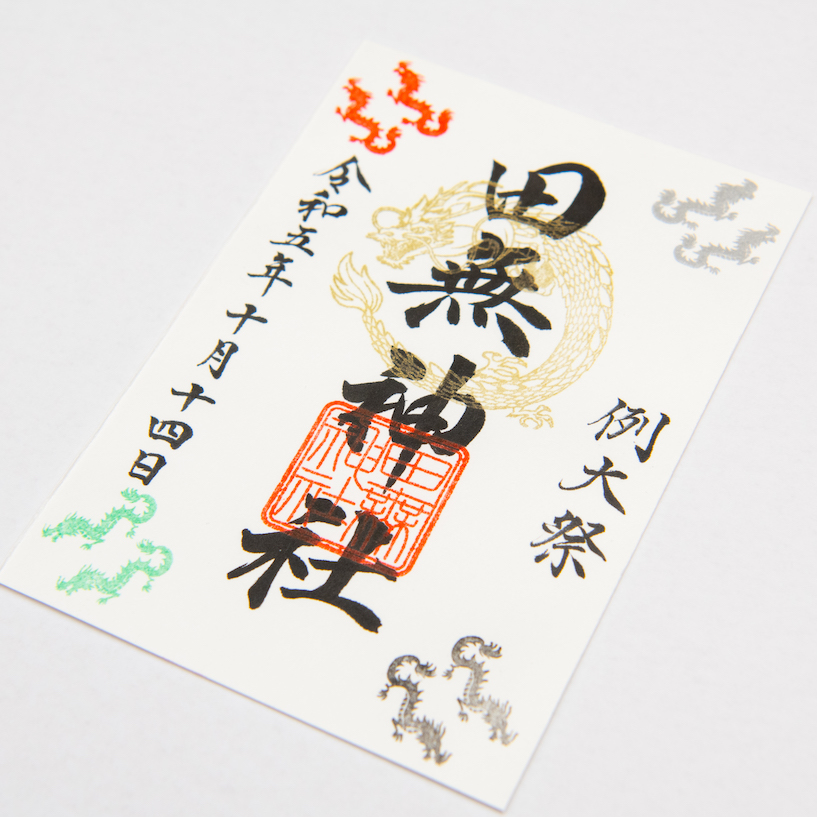 例大祭
田無神社
田無
神社
令和五年十月十四日